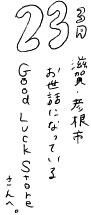 23日
滋賀・彦根市
お世話になっている
Good Luck Store
さんへ。